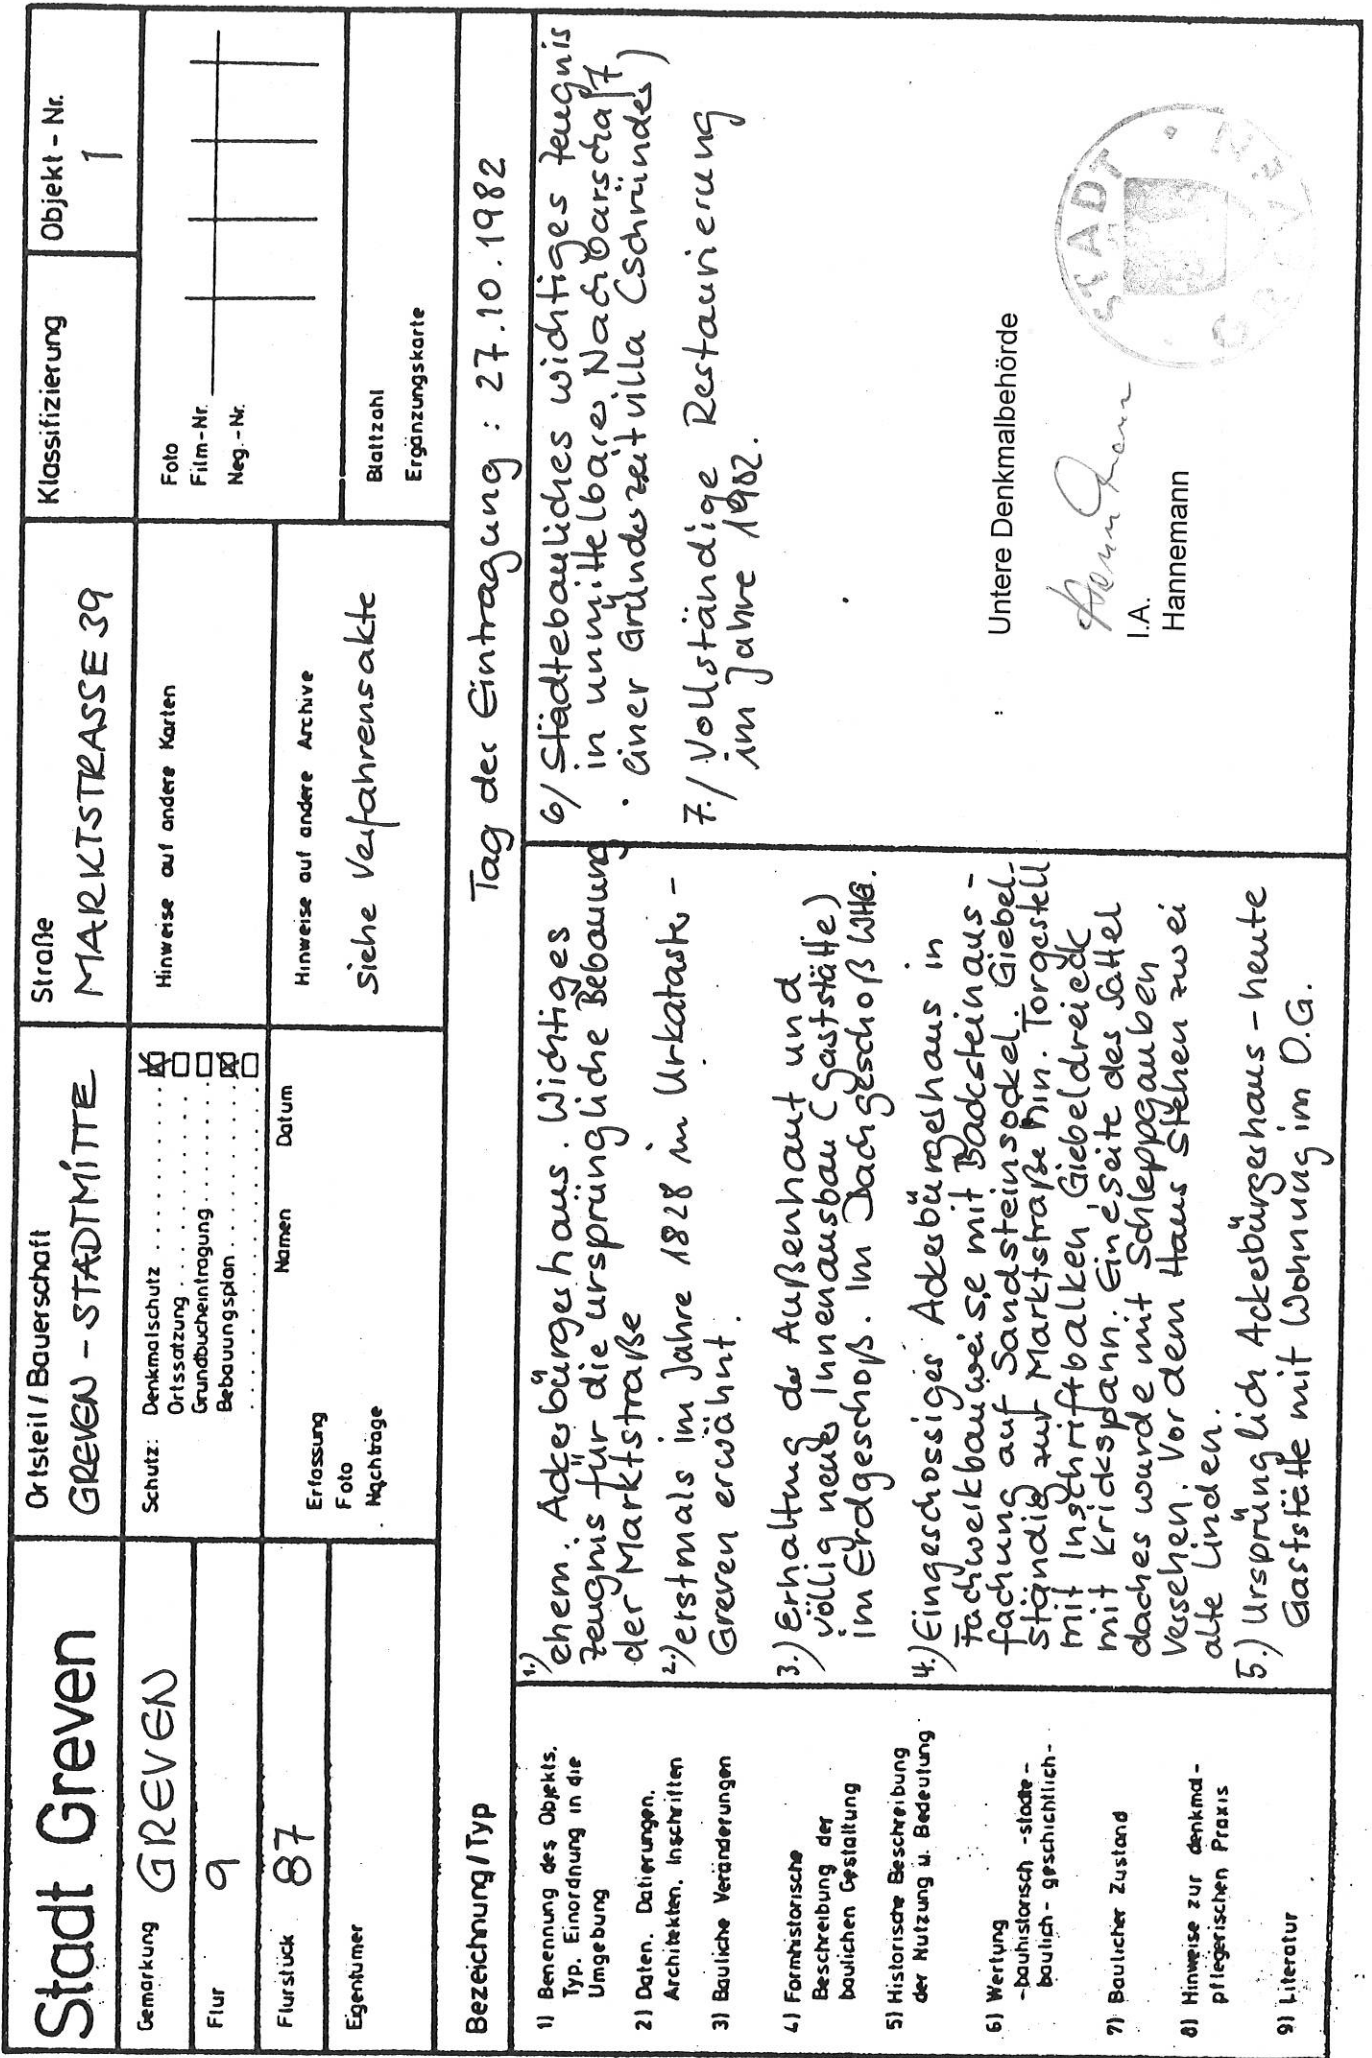 Stadt Greven
Ortsteil / Bauerschaft
GREVEN - STADTMITTE
Straße
MARKTSTRASSE 39
Klassifizierung
Objekt - Nr.
1
Gemarkung GREVEN
Flur 9
Flurstück 87
Eigentümer
Schutz: Denkmalschutz
Ortssatzung
Grundbucheintragung
Bebauungsplan
Namen Datum
Erfassung
Foto
Nachträge
Hinweise auf andere Karten
Hinweise auf andere Archive
Siehe Verfahrensakte
Foto
Film-Nr.
Neg.-Nr.
Blattzahl
Ergänzungskarte
Bezeichnung / Typ
Tag der Eintragung : 27.10.1982
1) Benennung des Objekts.
Typ. Einordnung in die
Umgebung
2) Daten. Datierungen.
Architekten. Inschriften
3) Bauliche Veränderungen
4) Formhistorische
Beschreibung der
baulichen Gestaltung
5) Historische Beschreibung
der Nutzung u. Bedeutung
6) Wertung
-bauhistorisch -städte-
baulich - geschichtlich-
7) Baulicher Zustand
8) Hinweise zur denkmal-
pflegerischen Praxis
9) Literatur
1.) ehem. Ackerbürgerhaus. Wichtiges
Zeugnis für die ursprüngliche Bebauung
der Marktstraße
2.) erstmals im Jahre 1828 im Urkataster -
Greven erwähnt.
3.) Erhaltung der Außenhaut und
völlig neuer Innenausbau (Gaststätte)
im Erdgeschoß. Im Dachgeschoß WHG.
4.) Eingeschossiges Ackerbürgerhaus in
Fachwerkbauweise mit Backsteinaus-
fachung auf Sandsteinsockel. Giebel-
ständig zur Marktstraße hin. Torgestell
mit Inschriftbalken, Giebeldreieck
mit Krickspann. Eine Seite des Sattel
daches wurde mit Schleppgauben
versehen. Vor dem Haus stehen zwei
alte Linden.
5.) Ursprünglich Ackerbürgerhaus - heute
Gaststätte mit Wohnung im O.G.
6/ Städtebauliches wichtiges Zeugnis
in unmittelbarer Nachbarschaft
einer Gründerzeitvilla (Schründer)
7./ Vollständige Restaurierung
im Jahre 1982.
Untere Denkmalbehörde
I.A.
Hannemann
STADT GREVEN